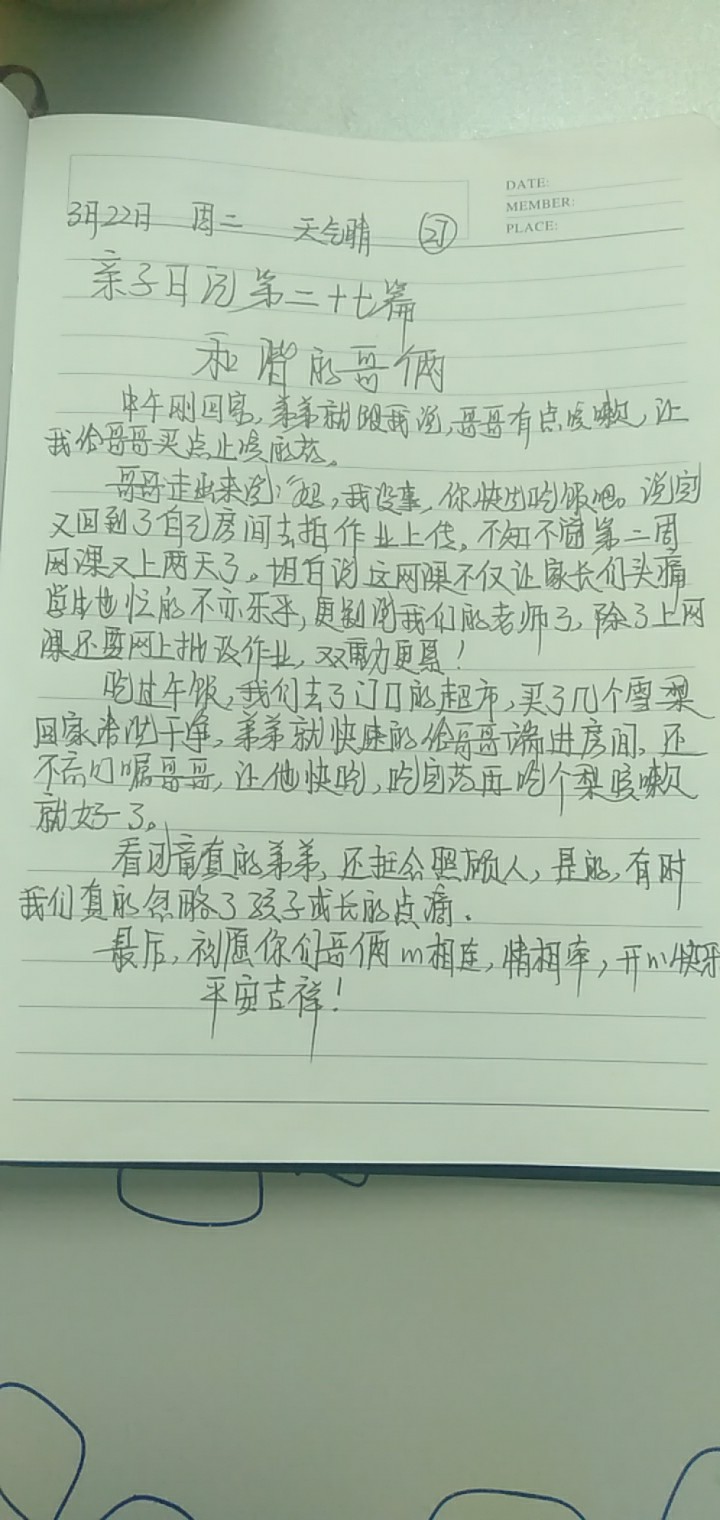 DATE:
MEMBER:
PLACE:
3月22日 周二 天气晴 ㉗
亲子日记第二十七篇
和谐的哥俩
中午刚回家,弟弟就跟我说,哥哥有点咳嗽,让
我给哥哥买点止咳的药。
哥哥走出来说:“妈,我没事,你快去吃饭吧。说完
又回到了自己房间去拍作业上传。不知不觉第二周
网课又上两天了。坦白说这网课不仅让家长们头痛
学生也忙的不亦乐乎,更别说我们的老师了,除了上网
课还要网上批改作业,双重力更累!
吃过午饭,我们去了门口的超市,买了几个雪梨
回家清洗干净,弟弟就快速的给哥哥端进房间,还
不忘叮嘱哥哥,让他快吃,吃完药再吃个梨咳嗽
就好了。
看到童真的弟弟,还挺会照顾人,是的,有时
我们真的忽略了孩子成长的点滴.
最后,祝愿你们哥俩心相连,情相牵,开心快乐
平安吉祥!